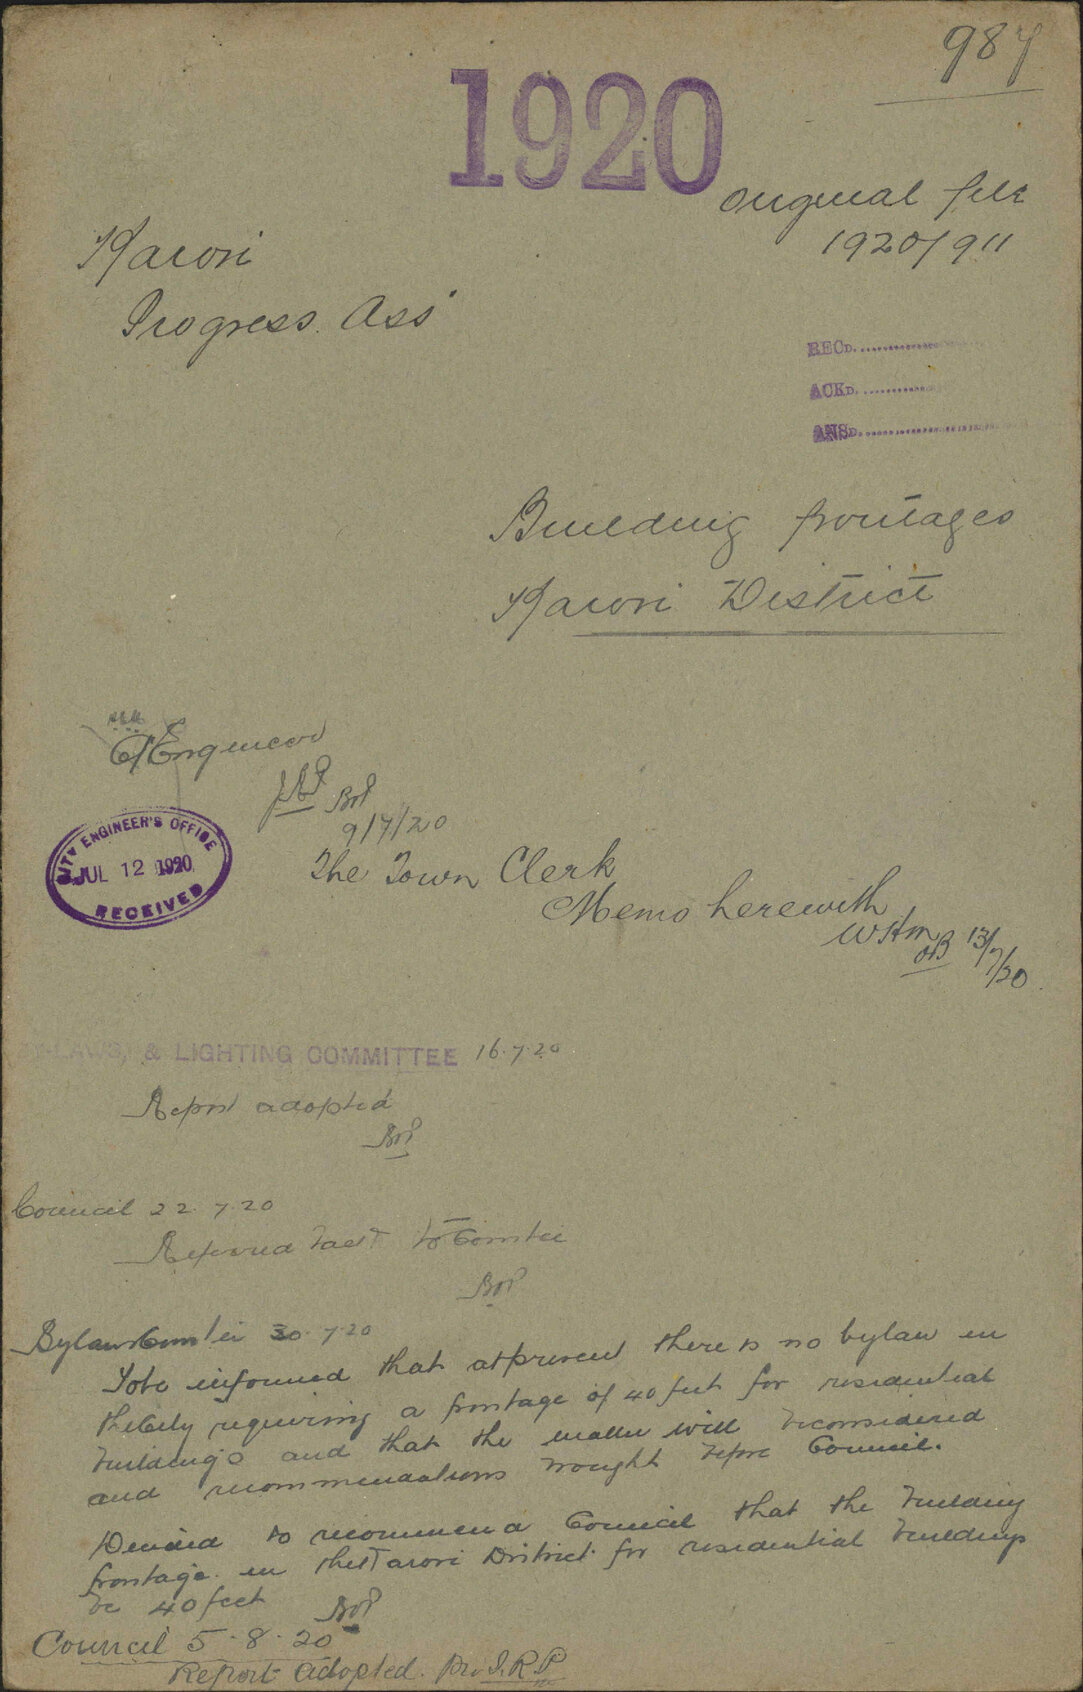 987
1920
Original file
1920/911
Karori
Progress Ass
RECD.
ACKD.
ANSD.
Building frontages
Karori District
C/Engineer
9/7/20
CITY ENGINEER'S OFFICE
JUL 12 1920
RECEIVED
The Town Clerk
Memo herewith
13/7/20
BY-LAWS, & LIGHTING COMMITTEE 16.7.20
Report adopted
Council 22.7.20
Referred back to Comtee
Bylaws Comtee 30.7.20
To be informed that at present there is no bylaw in
the City requiring a frontage of 40 feet for residential
buildings and that the matter will be considered
and recommendations brought before Council.
Decided to recommend Council that the building
frontage in the Karori District for residential buildings
be 40 feet
Council 5.8.20
Report adopted.